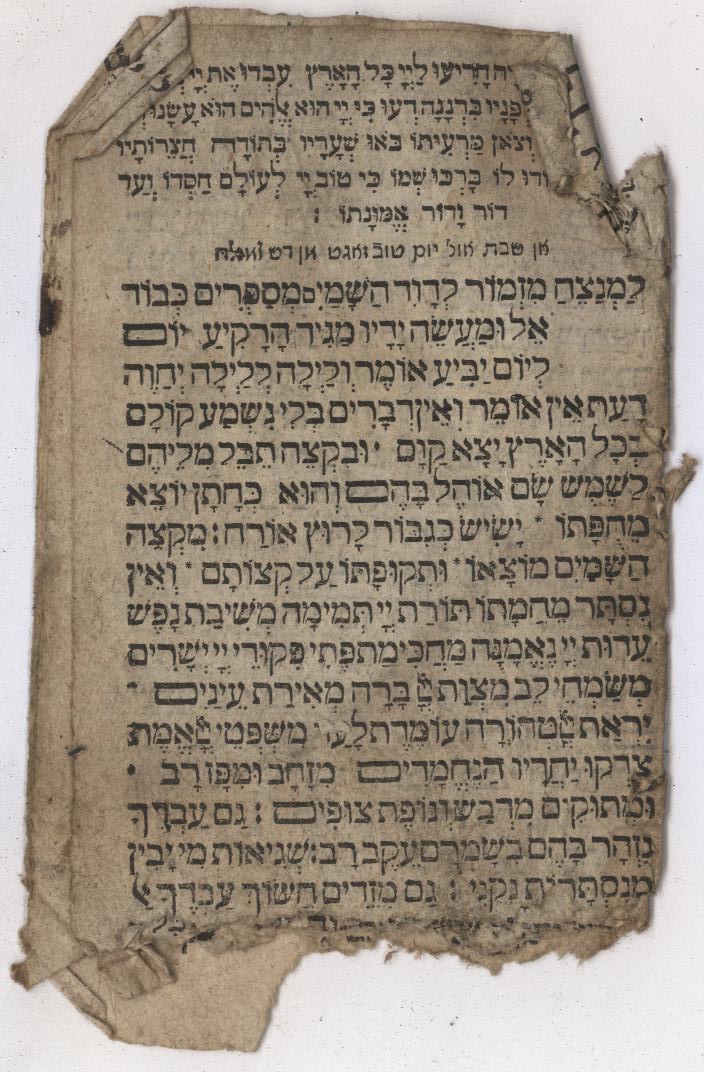 הריעו לַיְיָ כָּל הָאָרֶץ עִבְדוּ אֶת יְיָ
לְפָנָיו בִּרְנָנָה דְעוּ כִּי יְיָ הוּא אֱלֹהִים הוּא עָשָׂנוּ
וְצֹאן מַרְעִיתוֹ בֹּאוּ שְׁעָרָיו בְּתוֹדָה חֲצֵרוֹתָיו
הודוּ לוֹ בָּרְכוּ שְׁמוֹ כִּי טוֹב יְיָ לְעוֹלָם חַסְדּוֹ וְעַד
דוֹר וָדוֹר אֱמוּנָתוֹ :
אן שבת אול יום טוב זאגט מן דש
לַמְנַצֵחַ מִזְמוֹר לְדָוִד הַשָׁמַיִם מְסַפְּרִים כְּבוֹד
אֵל וּמַעֲשֵׂה יָדָיו מַגִּיד הָרָקִיעַ יוֹם
לְיוֹם יַבִּיעַ אוֹמֶר וְלַיְלָה לְּלַיְלָה יְחַוֶה
דָעַת אֵין אוֹמֶר וְאֵין דְבָרִים בְּלִי נִשְׁמָע קוֹלָם
בְּכָל הָאָרֶץ יָצָא קַוָּם ׳ וּבִקְצֵה תֵבֵל מִלֵיהֶם
לַשֶׁמֶשׁ שָׂם אוֹהֶל בָּהֶם וְהוּא כְּחָתָן יוֹצֵא
מֵחֻפָּתוֹ ׳ יָשִׂישׂ כְּגִבּוֹר לָרוּץ אוֹרַח : מִקְצֵה
הַשָׁמַיִם מוֹצָאוֹ ׳ וּתְקוּפָתוֹ עַל קְצוֹתָם ׳ וְאֵין
נִסְתָּר מֵחַמָתוֹ תּוֹרַת יְיָ תְּמִימָה מְשִׁיבַת נָפֶשׁ
עֵדוּת יְיָ נֶאֱמָנָה מַחְכִּימַת פֶּתִי פִּקוּדֵי יְיָ יְשָׁרִים
מְשַׂמְחֵי לֵב מִצְוַת יְיָ בָּרָה מְאִירַת עֵינָיִם ׳
יִרְאַת יְיָ טְהוֹרָה עוֹמֶדֶת לָעַד ׳ מִשְׁפְּטֵי יְיָ אֱמֶת
צָדְקוּ יַחְדָיו הַנֶחֱמָדִים מִזָהָב וּמִפָּז רָב ׳
וּמְתוּקִים מִדְבַשׁ וְנוֹפֶת צוּפִים : גַּם עַבְדְךָ
נִזְהָר בָּהֶם בְּשָׁמְרָם עֵקֶב רָב : שְׁגִיאוֹת מִי יָבִין
מִנִסְתָּרוֹת נַקֵנִי : גַּם מִזֵדִים חֲשׂוֹךְ עַבְדֶךָ אַל